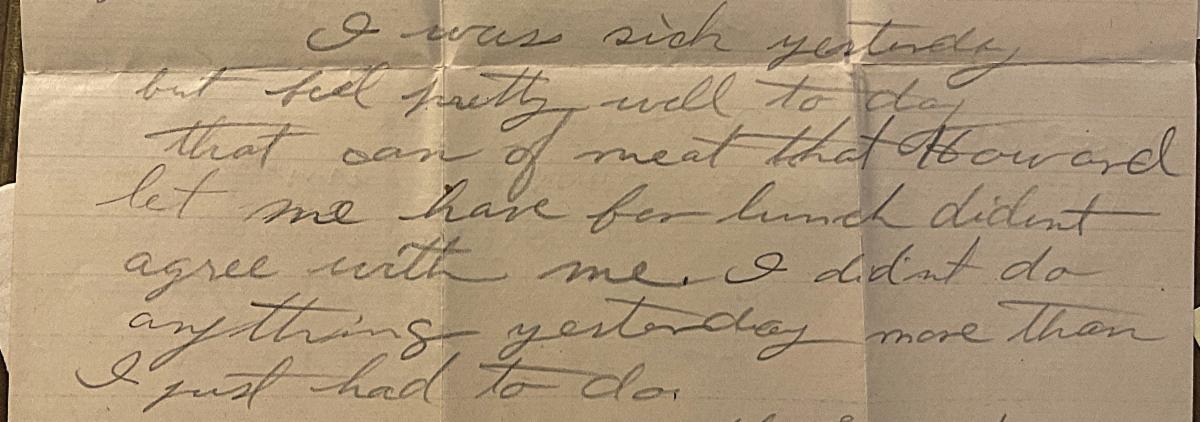 I was sick yesterday
but feel pretty well to day
that can of meat that Howard
let me have for lunch dident
agree with me. I didnt do
anything yesterday more than
I just had to do.